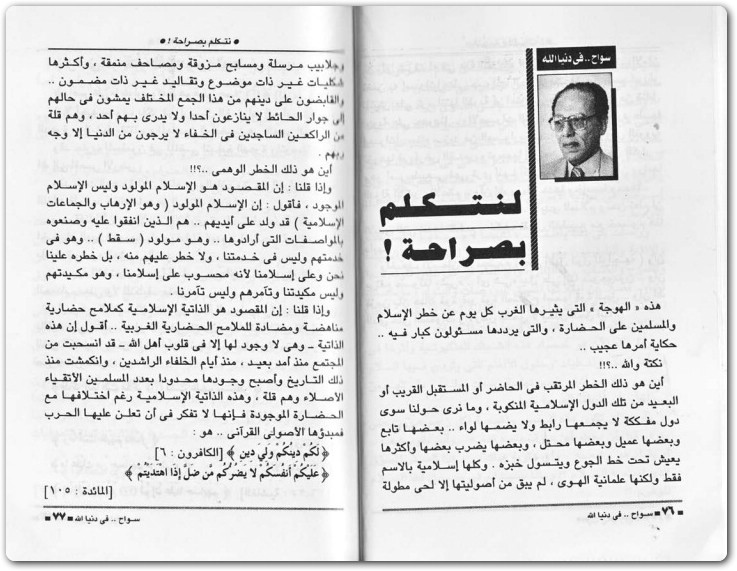 سواح .. فى دنيا الله
لنتكلم
بصراحة !
هذه « الهوجة » التى يثيرها الغرب كل يوم عن خطر الإسلام
والمسلمين على الحضارة ، والتى يرددها مسئولون كبار فيه ..
حكاية أمرها عجيب ..
نكتة والله ..؟!!
أين هو ذلك الخطر المرتقب فى الحاضر أو المستقبل القريب أو
البعيد من تلك الدول الإسلامية المنكوبة ، وما نرى حولنا سوى
دول مفككة لا يجمعها رابط ولا يضمها لواء .. بعضها تابع
وبعضها عميل وبعضها محتل ، وبعضها يضرب بعضها وأكثرها
يعيش تحت خط الجوع ويتسول خبزه . وكلها إسلامية بالاسم
فقط ولكنها علمانية الهوى ، لم يبق من أصوليتها إلا لحى مطولة
٧٦ سواح .. فى دنيا الله
• نتكلم بصراحة ! •
وجلابيب مرسلة ومسابح مزوقة ومصاحف منمقة ، وأكثرها
شكليات غير ذات موضوع وتقاليد غير ذات مضمون ..
والقابضون على دينهم من هذا الجمع المختلف يمشون فى حالهم
إلى جوار الحائط لا ينازعون أحدا ولا يدرى بهم أحد ، وهم قلة
من الراكعين الساجدين فى الخفاء لا يرجون من الدنيا إلا وجه
ربهم .
أين هو ذلك الخطر الوهمى ..؟!!
وإذا قلنا : إن المقصود هو الإسلام المولود وليس الإسلام
الموجود ، فأقول : إن الإسلام المولود ( وهو الإرهاب والجماعات
الإسلامية ) قد ولد على أيديهم .. هم الذين انفقوا عليه وصنعوه
بالمواصفات التى أرادوها .. وهو مولود ( سقط ) .. وهو فى
خدمتهم وليس فى خدمتنا ، ولا خطر عليهم منه ، بل خطره علينا
نحن وعلى إسلامنا لأنه محسوب على إسلامنا ، وهو مكيدتهم
وليس مكيدتنا وتآمرهم وليس تآمرنا .
وإذا قلنا : إن المقصود هو الذاتية الإسلامية كملامح حضارية
مناهضة ومضادة للملامح الحضارية الغربية .. أقول إن هذه
الذاتية ــ وهى لا وجود لها إلا فى قلوب أهل الله ــ قد انسحبت من
المجتمع منذ أمد بعيد ، منذ أيام الخلفاء الراشدين ، وانكمشت منذ
ذلك التاريخ وأصبح وجودها محدودا بعدد المسلمين الأتقياء
الأصلاء وهم قلة ، وهذه الذاتية الإسلامية رغم اختلافها مع
الحضارة الموجودة فإنها لا تفكر فى أن تعلن عليها الحرب
فمبدؤها الأصولى القرآنى .. هو :
﴿ لَكُمْ دِينُكُمْ وَلِيَ دِينِ ﴾ [الكافرون : ٦]
﴿ عَلَيْكُمْ أَنفُسَكُمْ لا يَضُرُّكُم مَّن ضَلَّ إِذَا اهْتَدَيْتُمْ ﴾
[المائدة : ١٠٥]
سواح .. فى دنيا الله ٧٧